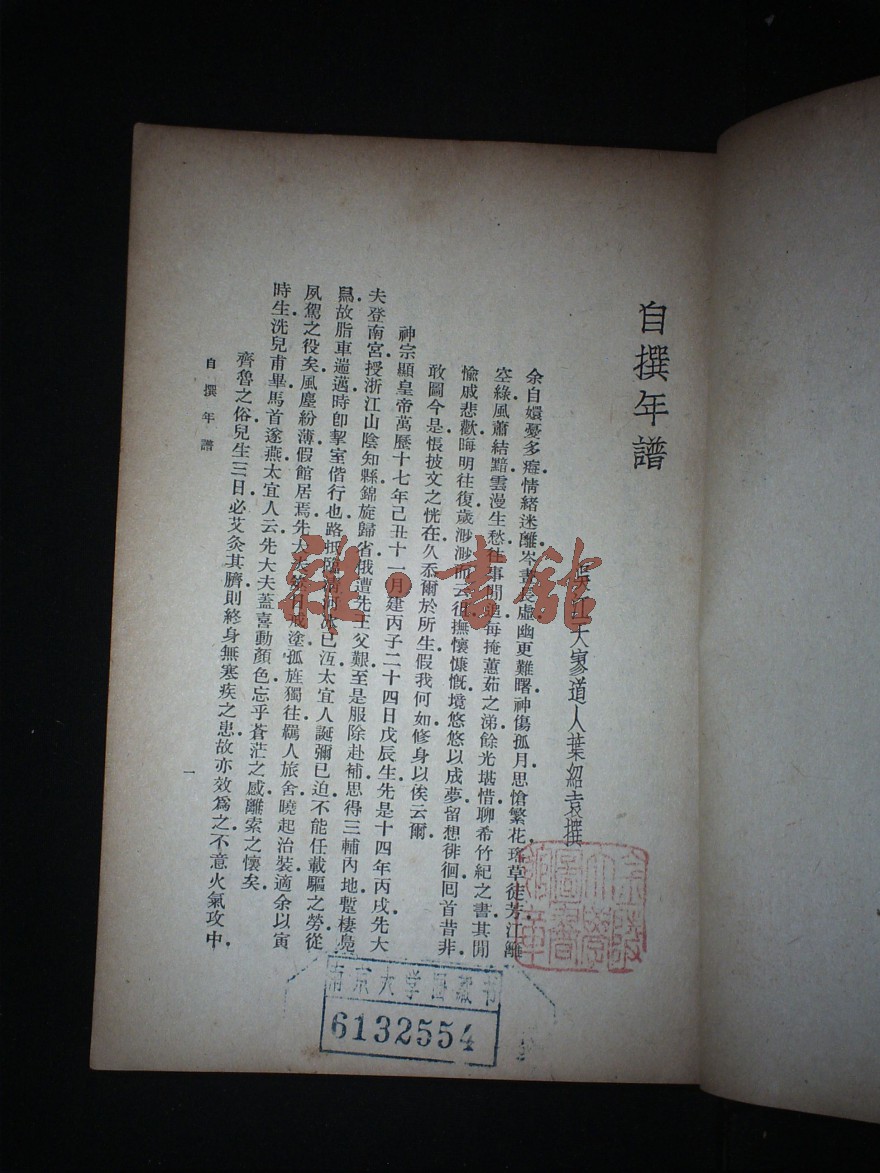 自撰年譜
江大寥道人葉紹袁撰
余自嬛憂多瘧情緒迷離岑畫虛幽更難曙神傷孤月思愴繁花瑤草徒芳江蘺
空綠風蕭結黯雲漫生愁往事閒追每掩蕙茹之涕餘光堪惜聊希竹紀之書其閒
愉戚悲歡晦明往復歲渺渺而云徂撫懷慷慨境悠悠以成夢留想徘徊囘首昔非
敢圖今是悵披文之恍在久忝爾於所生假我何如修身以俟云爾
神宗顯皇帝萬歷十七年己丑十一月建丙子二十四日戊辰生先是十四年丙戌先大
夫登南宮授浙江山陰知縣錦旋歸省俄遭先王父艱至是服除赴補思得三輔內地暫棲鳧
舄故脂車遄邁時卽挈室偕行也路抵臨河冰已沍太宜人誕彌已迫不能任載驅之勞從
夙駕之役矣風塵紛薄假館居焉先大夫戒塗孤旌獨往羈人旅舍曉起治裝適余以寅
時生洗兒甫畢馬首遂燕太宜人云先大夫蓋喜動顏色忘乎蒼茫之感離索之懷矣
齊魯之俗兒生三日必艾灸其臍則終身無寒疾之患故亦效爲之不意火氣攻中
自撰年譜
一
雜·書館
南京大学圖藏书
6132554